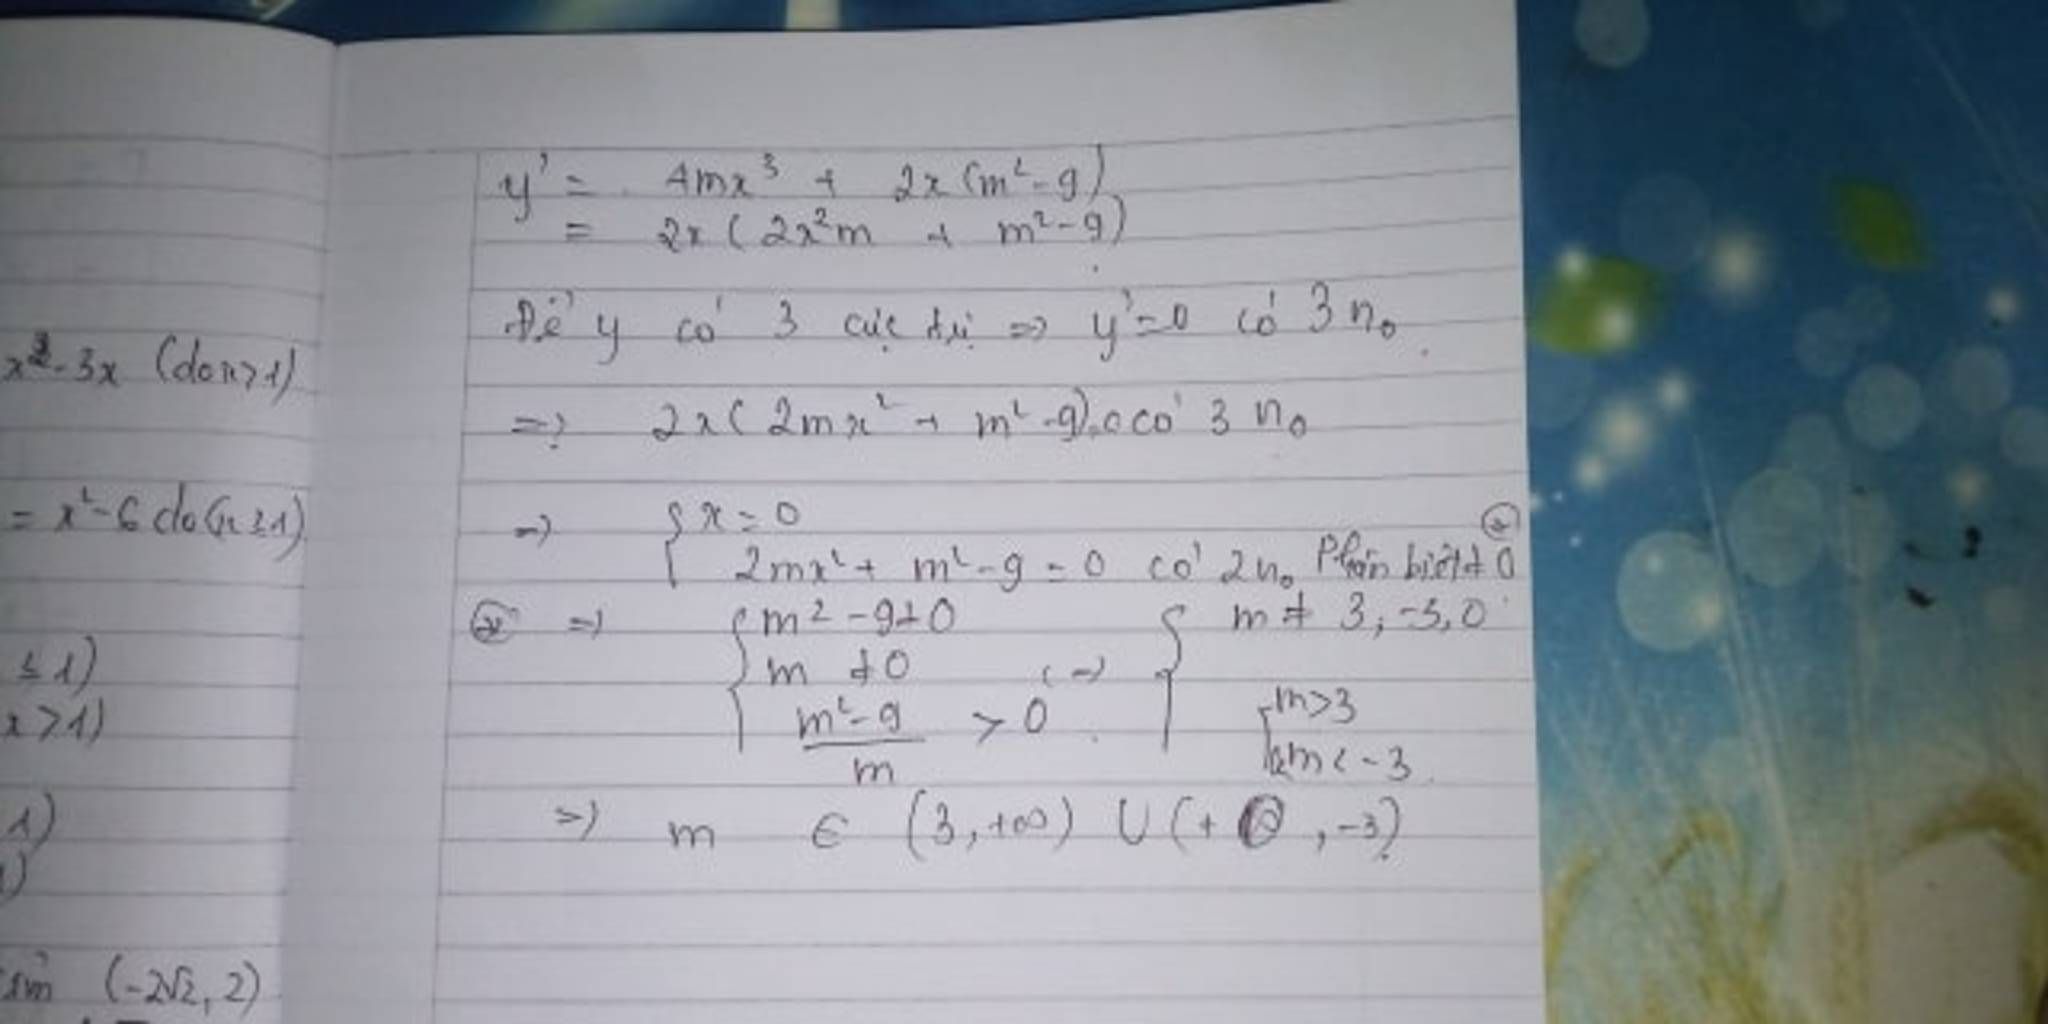 x²-3x (do x>1)
= x²-6 do (x≤1)
≤ 1)
x > 1)
1)
(-2√2, 2)
y' = 4mx³ + 2x (m²-9)
= 2x ( 2x²m + m²-9)
Để y có 3 cực trị => y'=0 có 3 n₀
=> 2x( 2mx² + m²-9)=0 có 3 n₀
=> { x = 0
2mx² + m²-9 = 0 có 2 n₀ Phân biệt ≠ 0 (*)
(*) => { m² - 9 ≠ 0
m ≠ 0
m²-9 / m > 0
<=> { m ≠ 3, -3, 0
[ m>3
m < -3
=> m ∈ (3, +∞) ∪ (+ , -3)